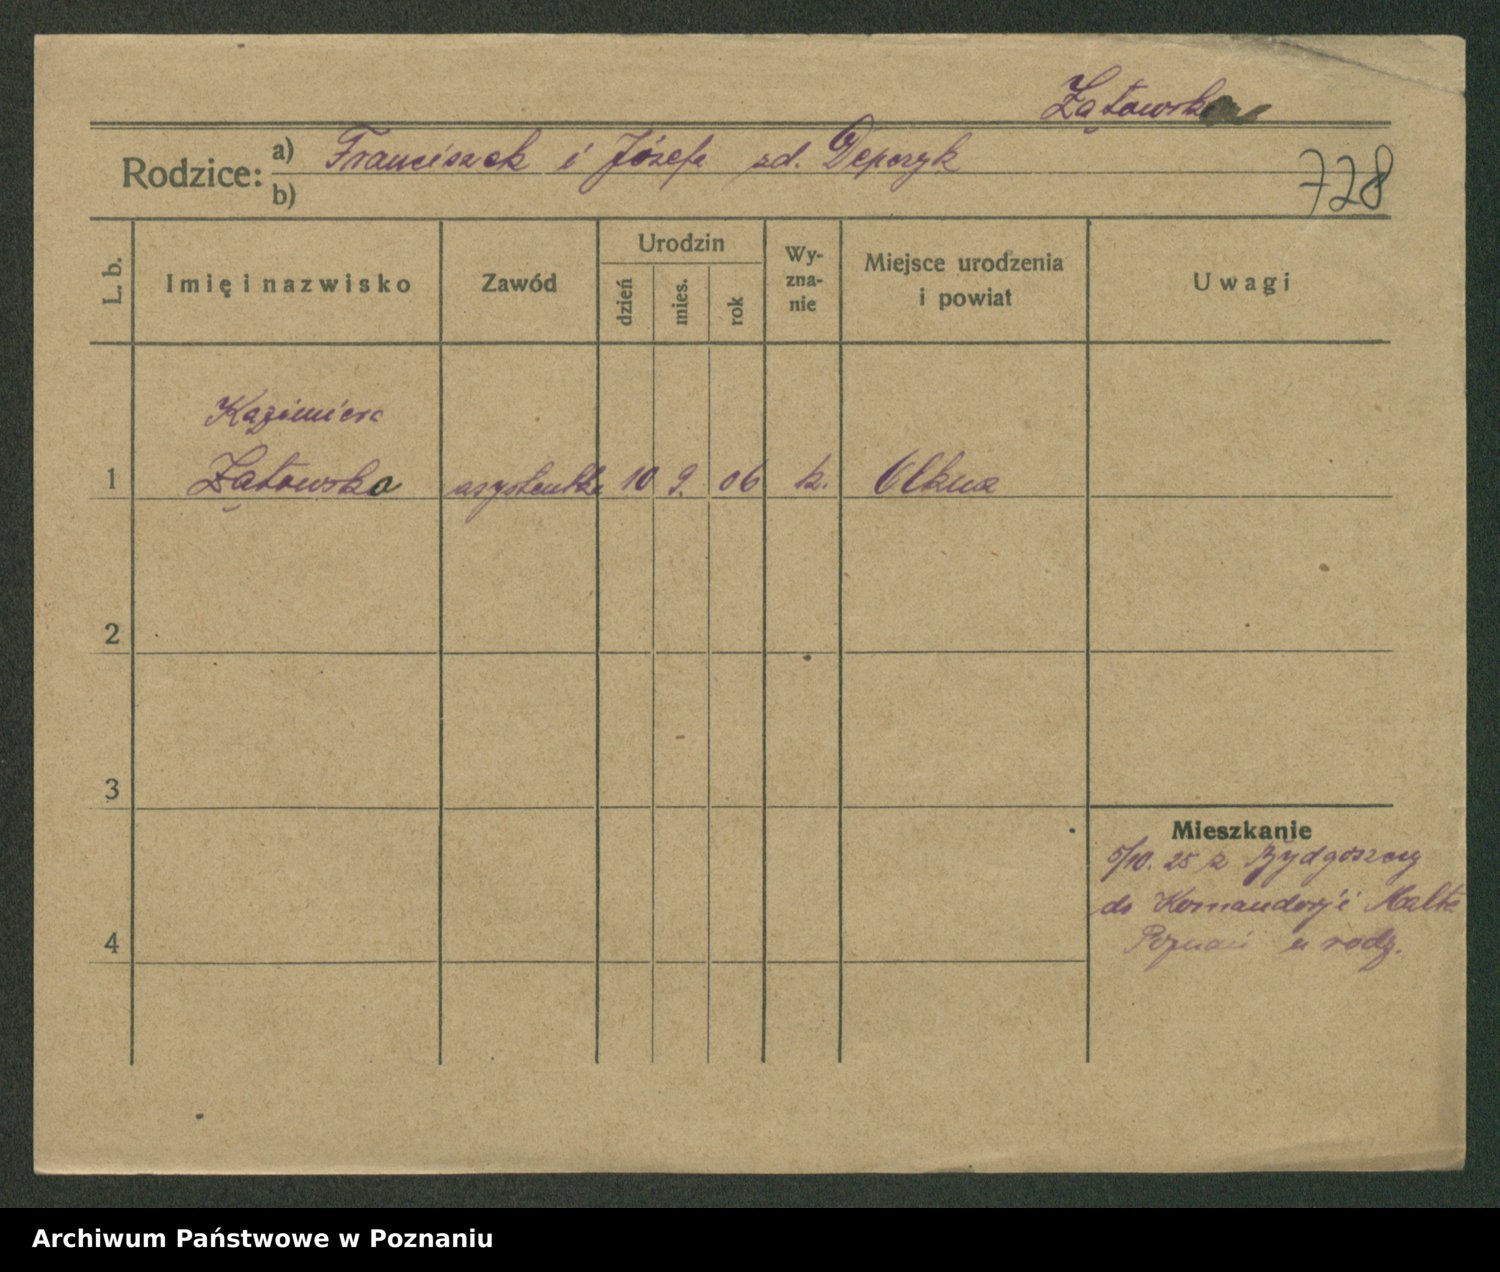 Zątowska
Rodzice: a) Franciszek i Józefa zd. Depczyk
b)
728
L. b.
Imię i nazwisko
Zawód
Urodzin
dzień
mies.
rok
Wy-
zna-
nie
Miejsce urodzenia
i powiat
Uwagi
Kazimiera
1 Zątowska asystentka 10 9. 06 k. Olkusz
2
3
Mieszkanie
5/10. 25 z Bydgoszczy
do Komandorji Malta
4
Poznań u rodz.
Archiwum Państwowe w Poznaniu